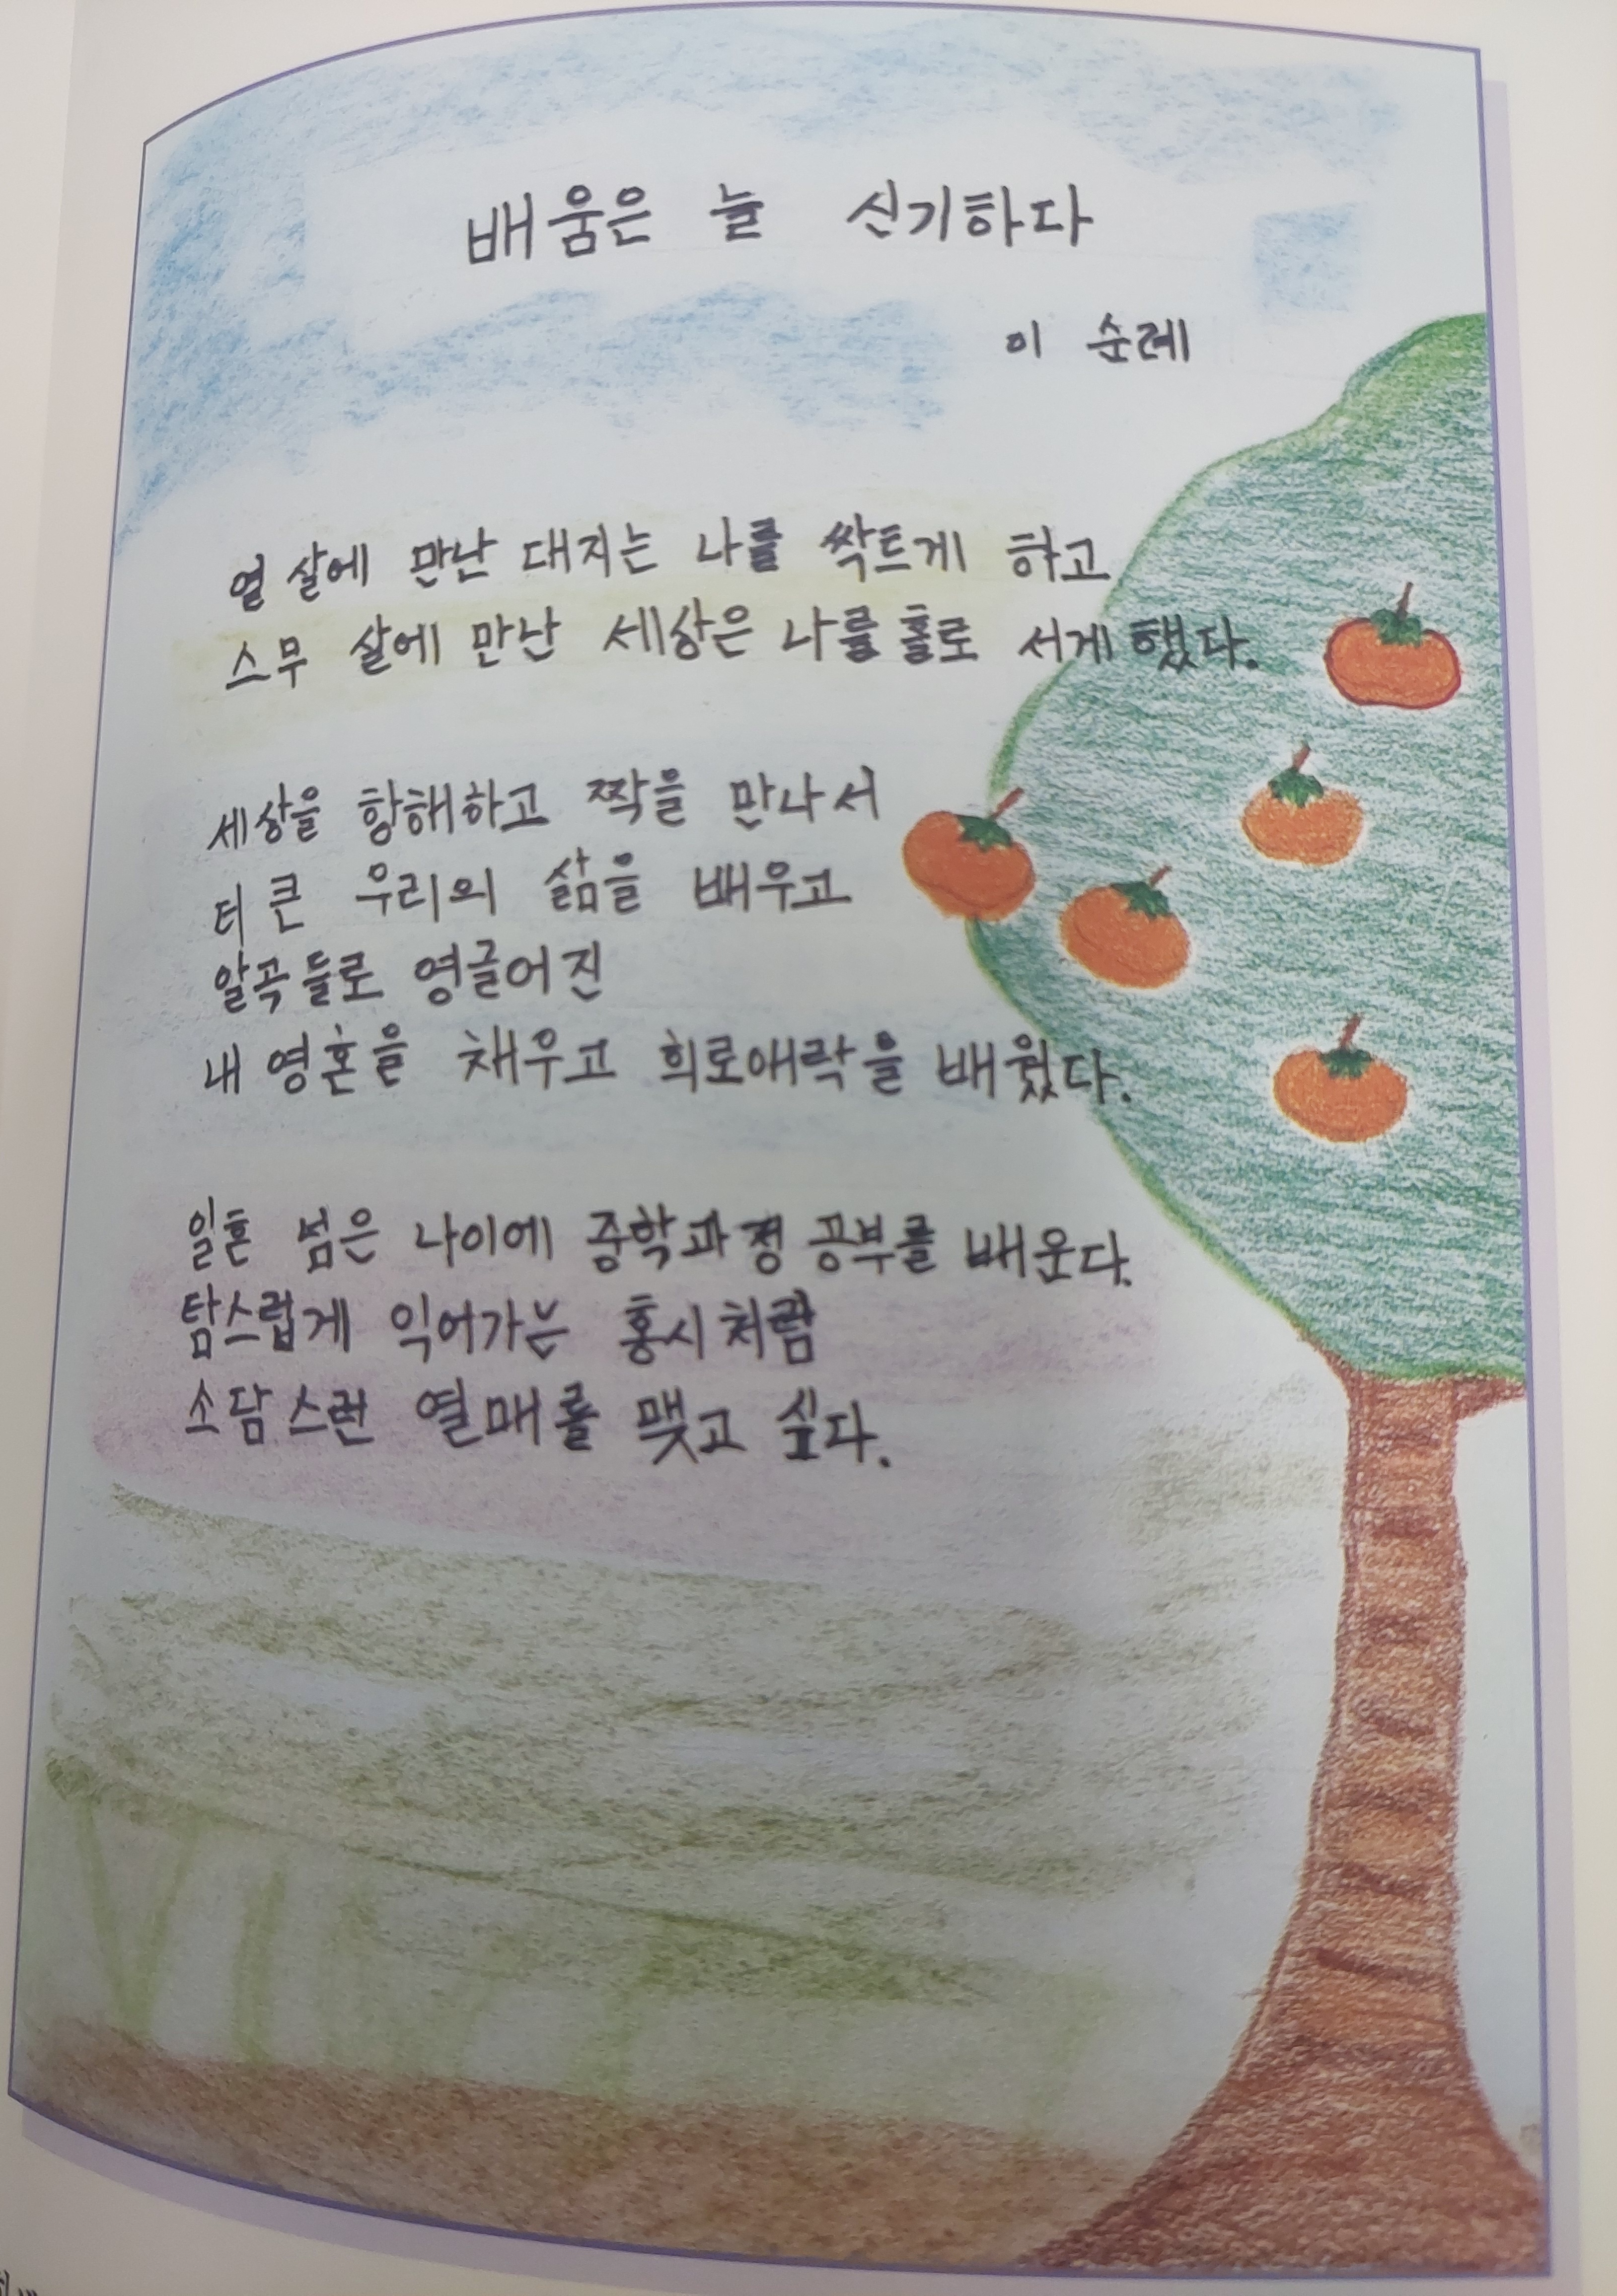 배움은 늘 신기하다
이 순례
열 살에 만난 대지는 나를 싹트게 하고
스무 살에 만난 세상은 나를 홀로 서게 했다.
세상을 항해하고 짝을 만나서
더 큰 우리의 삶을 배우고
알곡들로 영글어진
내 영혼을 채우고 희로애락을 배웠다.
일흔 넘은 나이에 중학과정 공부를 배운다.
탐스럽게 익어가는 홍시처럼
소담스런 열매를 맺고 싶다.